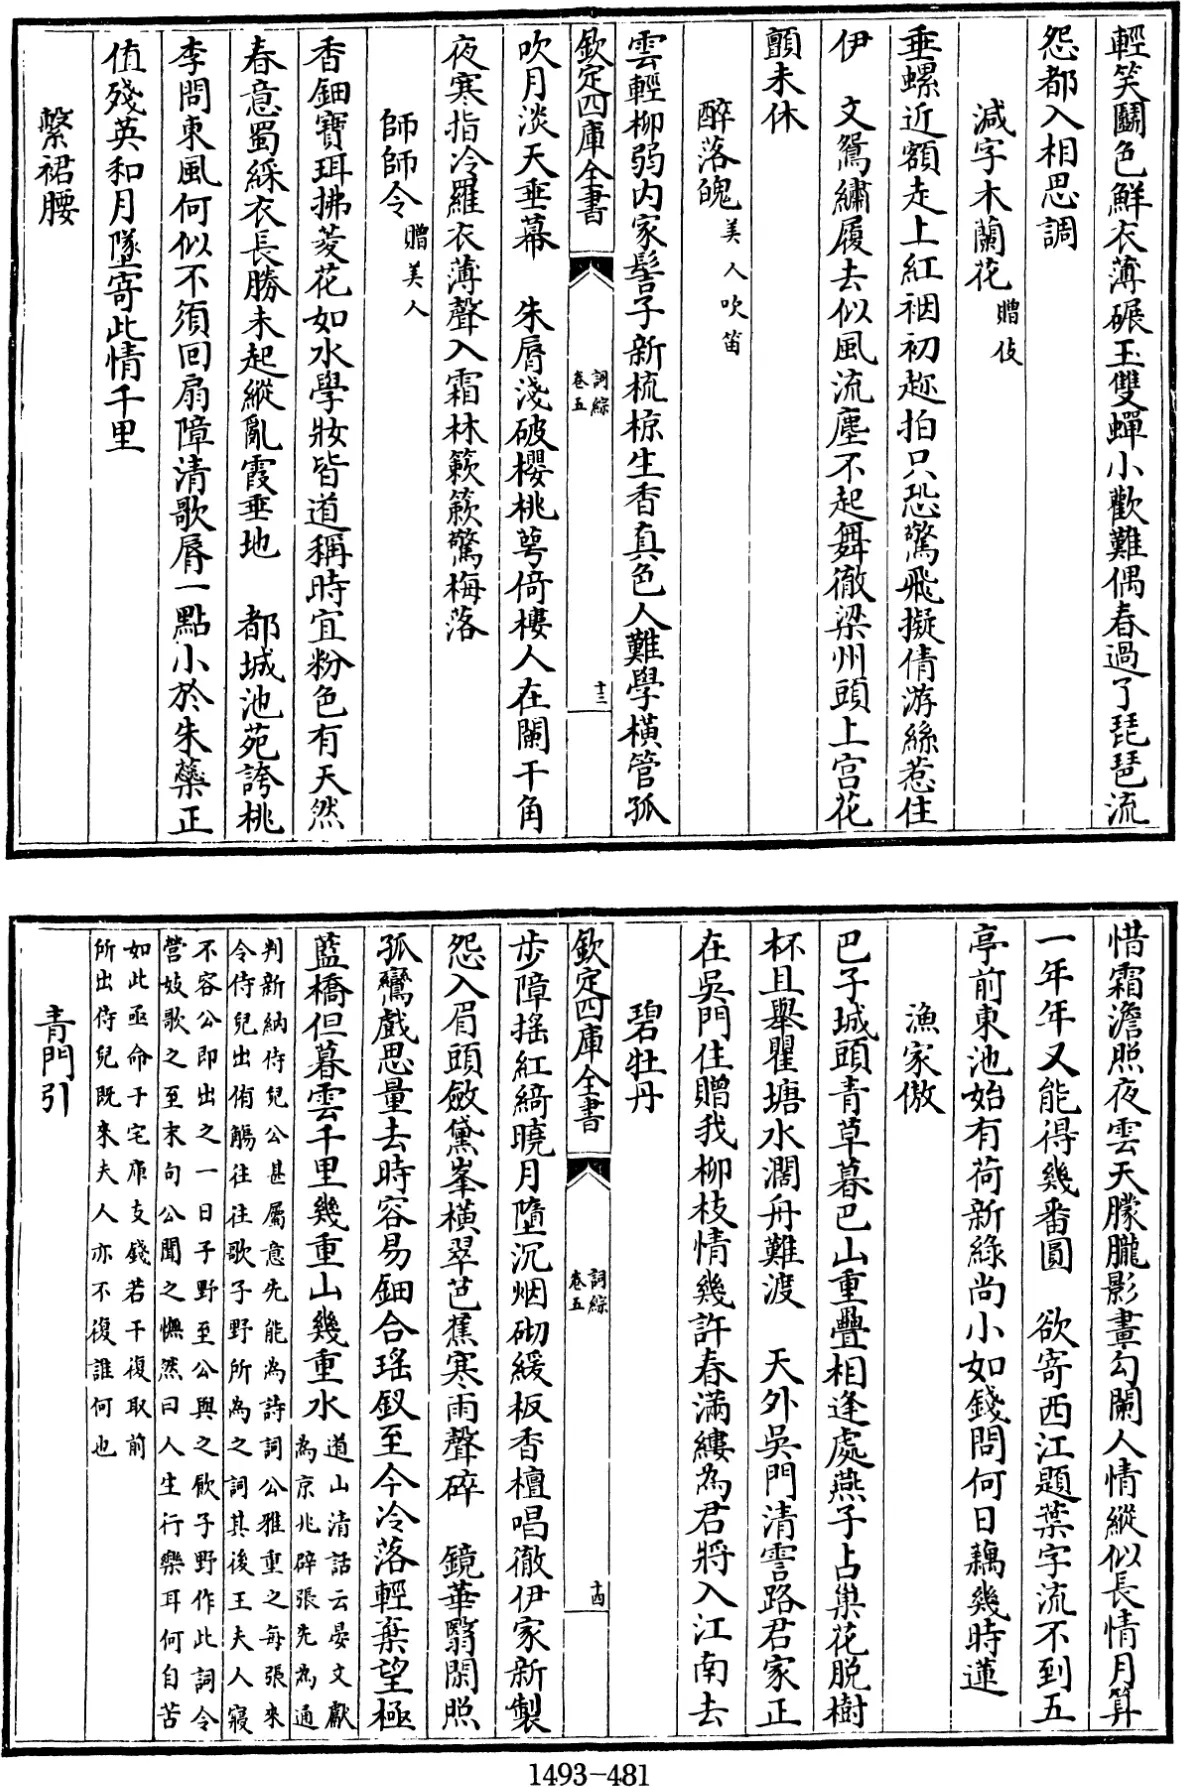 輕笑鬭色鮮衣薄碾玉雙蟬小歡難偶春過了琵琶流
怨都入相思調
減字木蘭花 贈伎
垂螺近額走上紅裀初趂拍只恐驚飛擬倩游絲惹住
伊 文鴛繡履去似風流塵不起舞徹梁州頭上宫花
顫未休
醉落魄 美人吹笛
雲輕柳弱内家髻子新梳掠生香真色人難學横管孤
欽定四庫全書
詞綜
卷五
十三
吹月淡天垂幕 朱脣淺破櫻桃萼倚樓人在闌干角
夜寒指冷羅衣薄聲入霜林簌簌驚梅落
師師令 贈美人
香鈿寶珥拂菱花如水學妝皆道稱時宜粉色有天然
春意蜀綵衣長勝未起縱亂霞垂地 都城池苑誇桃
李問東風何似不須回扇障清歌脣一點小於朱蘂正
值殘英和月墜寄此情千里
繫裙腰
惜霜澹照夜雲天朦朧影畫勾闌人情縱似長情月算
一年年又能得幾番圓 欲寄西江題葉字流不到五
亭前東池始有荷新綠尚小如錢問何日藕幾時蓮
漁家傲
巴子城頭青草暮巴山重疊相逢處燕子占巢花脱樹
杯且舉瞿塘水濶舟難渡 天外吳門清霅路君家正
在吳門住贈我柳枝情幾許春滿縷為君將入江南去
碧牡丹
欽定四庫全書
詞綜
卷五
十四
步障摇紅綺曉月墮沉烟砌緩板香檀唱徹伊家新製
怨入眉頭斂黛峯横翠芭蕉寒雨聲碎 鏡華翳閑照
孤鸞戲思量去時容易鈿合瑶釵至今冷落輕棄望極
藍橋但暮雲千里幾重山幾重水 道山清話云晏文獻
為京兆辟張先為通
判新納侍兒公甚屬意先能為詩詞公雅重之每張來
令侍兒出侑觴往往歌子野所為之詞其後王夫人寖
不容公即出之一日子野至公與之飲子野作此詞令
營妓歌之至末句公聞之憮然曰人生行樂耳何自苦
如此亟命于宅庫支錢若干復取前
所出侍兒既來夫人亦不復誰何也
青門引
1493-481